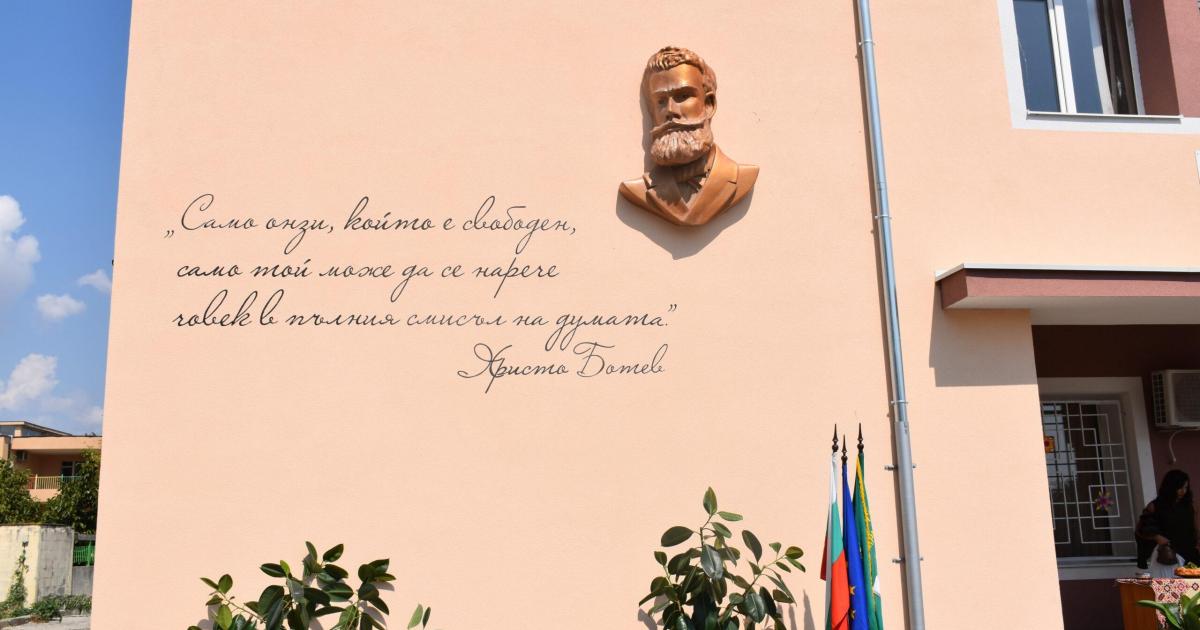 „Само онзи, който е свободен,
само той може да се нарече
човек в пълния смисъл на думата.”
Христо Ботев